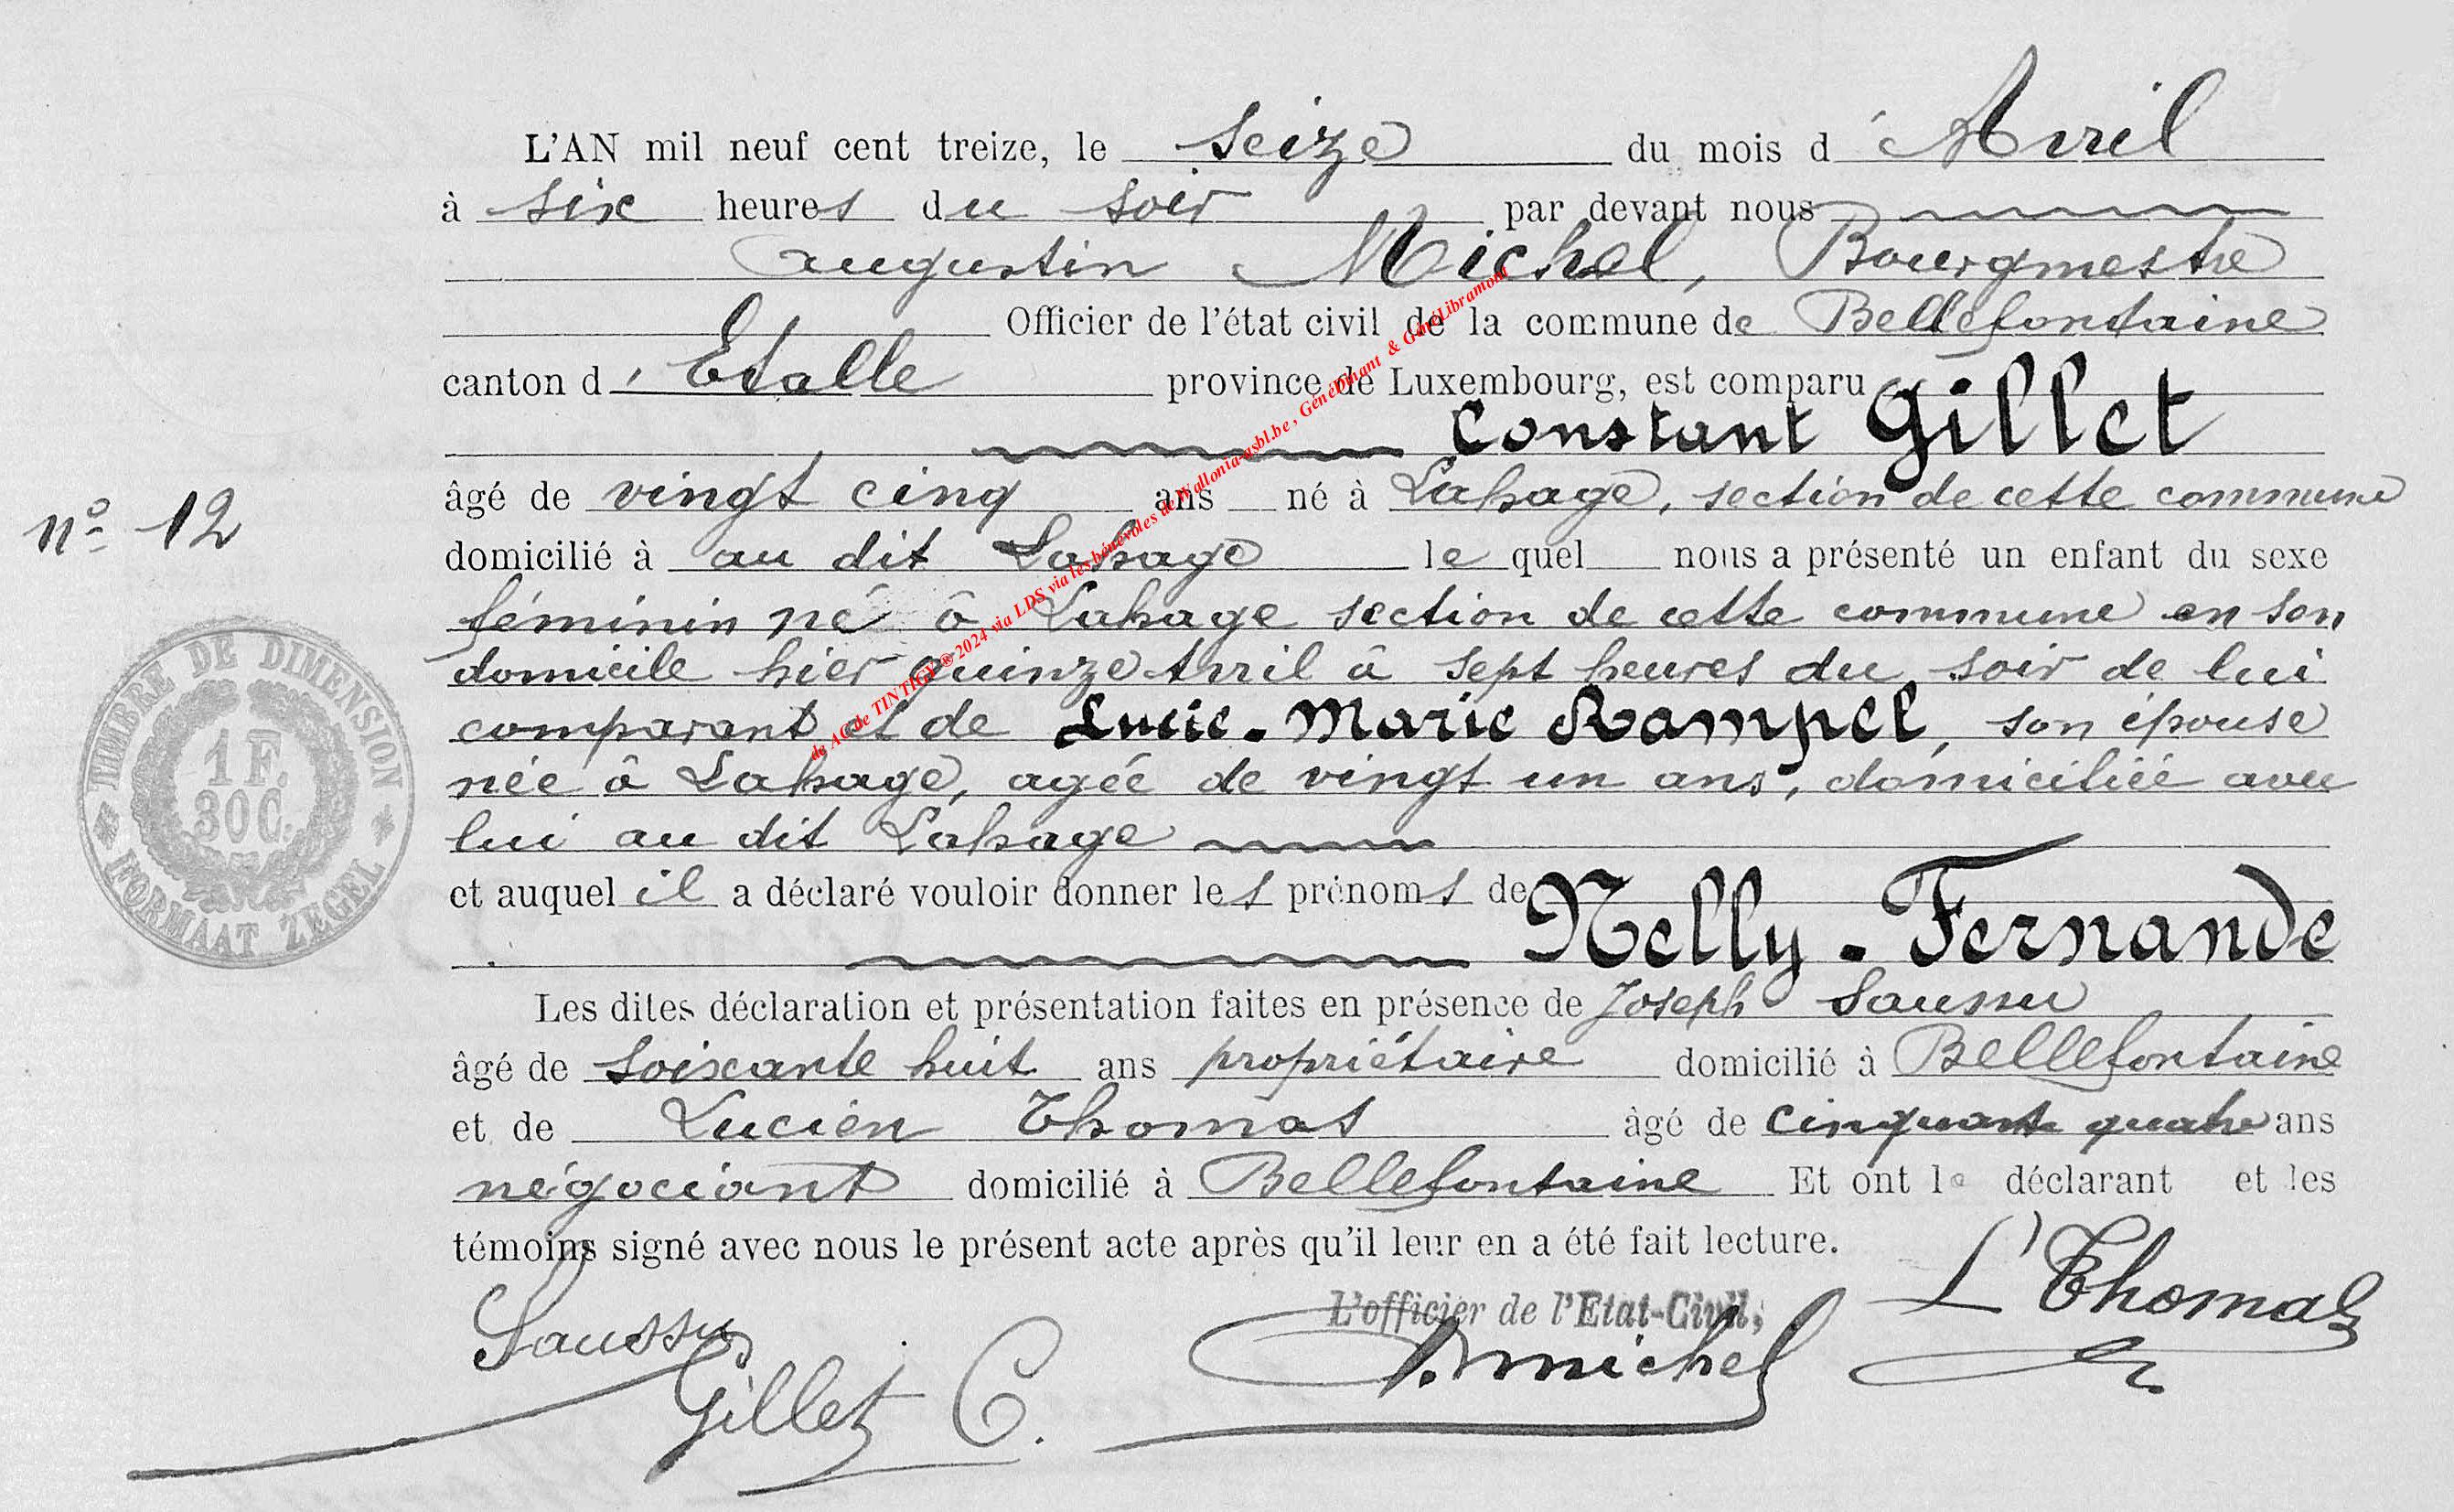 L'AN mil neuf cent treize, le seize du mois d'Avril
à six heures du soir par devant nous
Augustin Michel, Bourgmestre
Officier de l'état civil de la commune de Bellefontaine
canton d'Etalle province de Luxembourg, est comparu
Constant Gillet
âgé de vingt cinq ans né à Lahage, section de cette commune
nº 12
domicilié à au dit Lahage le quel nous a présenté un enfant du sexe
féminin né à Lahage section de cette commune en son
domicile hier quinze Avril à sept heures du soir de lui
comparant et de Lucie-Marie Rampel, son épouse
née à Lahage, agée de vingt un ans, domiciliée avec
lui au dit Lahage
et auquel il a déclaré vouloir donner les prénoms de
Nelly-Fernande
Les dites déclaration et présentation faites en présence de Joseph Saussu
âgé de soixante huit ans propriétaire domicilié à Bellefontaine
et de Lucien Thomas âgé de cinquante quatre ans
négociant domicilié à Bellefontaine Et ont le déclarant et les
témoins signé avec nous le présent acte après qu'il leur en a été fait lecture.
L'officier de l'Etat-Civil,
L Thomas
Saussu
Gillet C.
A. Michel
TIMBRE DE DIMENSION
1 F.
30 C.
FORMAAT ZEGEL
de AC de TINTIGY ® 2024 via LDS via les bénévoles de Wallonia-asbl.be, Génébinant & GénéLibramont